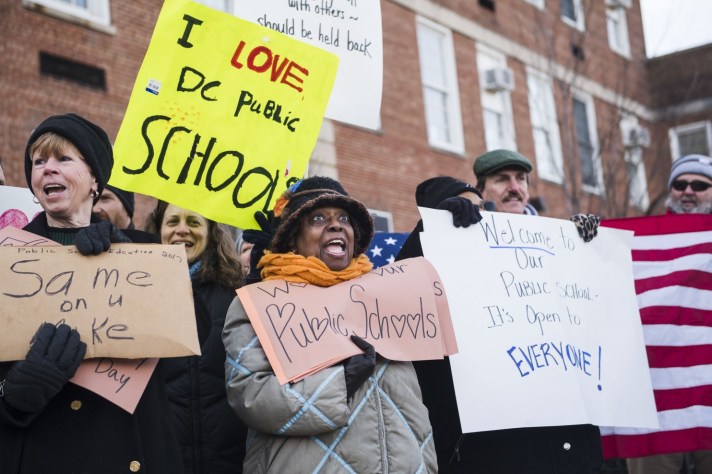 with others ~
should be held
back
I LOVE
DC PUBLIC
SCHOOLS
Public
Same
on u
Day
our
Public Schools
Welcome to
Our
Public School-
It's Open to
EVERYONE!